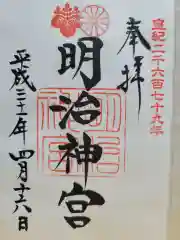 皇紀二千六百七十九年
奉拝
明治神宮
平成三十一年 四月十六日